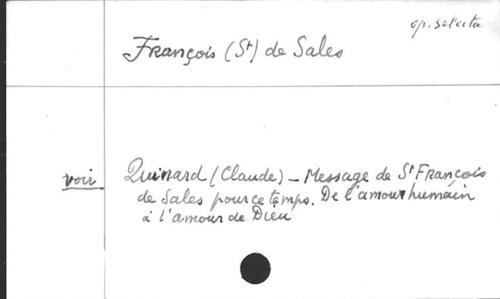 op. selecta
François (St) de Sales
voir Quinard (Claude) – Message de St François
de Sales pour ce temps. De l'amour humain
à l'amour de Dieu